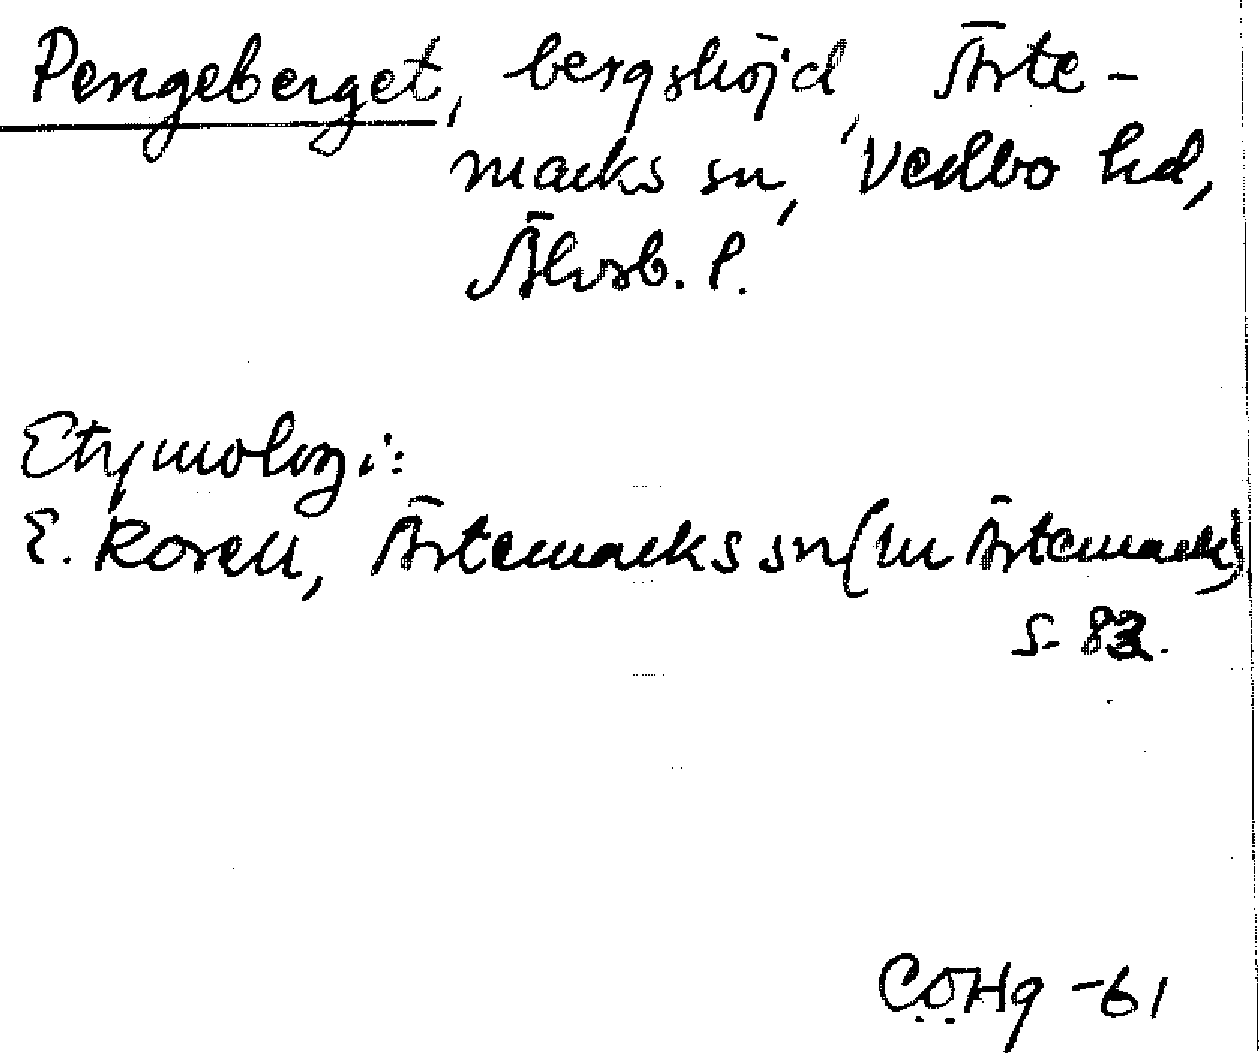 Pengeberget, bergshöjd, Ärte-
marks sn, Vedbo hd,
Älvsb. l.
Etymologi:
E. Rosell, Ärtemarks sn (in Ärtemark)
s. 83.
C.O.Hg -61